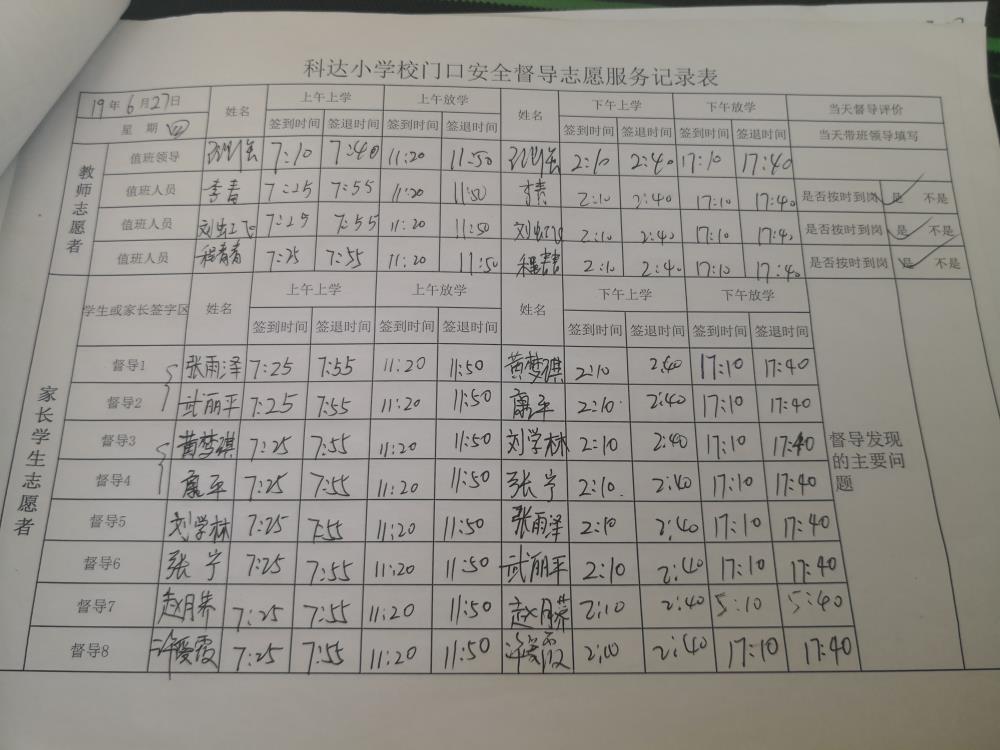 科达小学校门口安全督导志愿服务记录表
19年6月27日 姓名 上午上学 上午放学 姓名 下午上学 下午放学 当天督导评价
星期四 签到时间 签退时间 签到时间 签退时间 签到时间 签退时间 签到时间 签退时间 当天带班领导填写
教师志愿者
值班领导 7:10 7:40 11:20 11:50 2:10 2:40 17:10 17:40
值班人员 李青 7:25 7:55 11:20 11:50 李青 2:10 2:40 17:10 17:40 是否按时到岗 是 不是
值班人员 刘虹飞 7:25 7:55 11:20 11:50 刘虹飞 2:10 2:40 17:10 17:40 是否按时到岗 是 不是
值班人员 程青青 7:25 7:55 11:20 11:50 程青青 2:10 2:40 17:10 17:40 是否按时到岗 是 不是
家长学生志愿者
学生或家长签字区 姓名 上午上学 上午放学 姓名 下午上学 下午放学
签到时间 签退时间 签到时间 签退时间 签到时间 签退时间 签到时间 签退时间
督导1 张雨泽 7:25 7:55 11:20 11:50 黄梦祺 2:10 2:40 17:10 17:40
督导2 武丽平 7:25 7:55 11:20 11:50 康平 2:10 2:40 17:10 17:40
督导3 黄梦祺 7:25 7:55 11:20 11:50 刘学林 2:10 2:40 17:10 17:40
督导4 康平 7:25 7:55 11:20 11:50 张宁 2:10 2:40 17:10 17:40
督导5 刘学林 7:25 7:55 11:20 11:50 张雨泽 2:10 2:40 17:10 17:40
督导6 张宁 7:25 7:55 11:20 11:50 武丽平 2:10 2:40 17:10 17:40
督导7 赵月荞 7:25 7:55 11:20 11:50 赵月荞 2:10 2:40 5:10 5:40
督导8 许爱霞 7:25 7:55 11:20 11:50 许爱霞 2:10 2:40 17:10 17:40
督导发现
的主要问
题